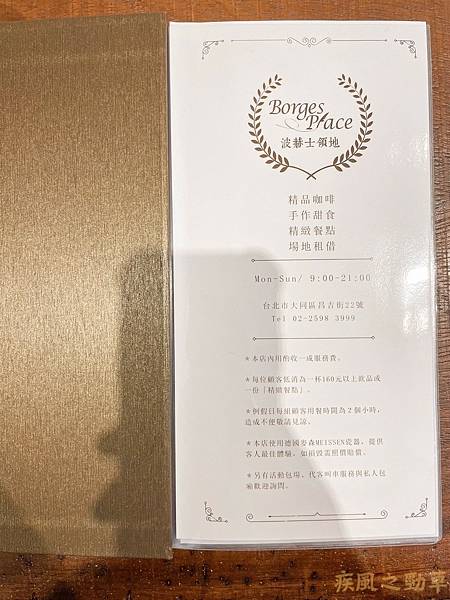 Borges
Place
波赫士領地
精品咖啡
手作甜食
精緻餐點
場地租借
Mon-Sun/ 9:00-21:00
台北市大同區昌吉街22號
Tel 02-2598 3999
★本店內用酌收一成服務費。
★每位顧客低消為一杯160元以上飲品或
一份「精緻餐點」。
★例假日每組顧客用餐時間為2個小時,
造成不便敬請見諒。
★本店使用德國麥森MEISSEN瓷器,提供
客人最佳體驗,如損毀需照價賠償。
★另有活動包場、代客叫車服務與私人包
廂歡迎詢問。
疾風之勁草